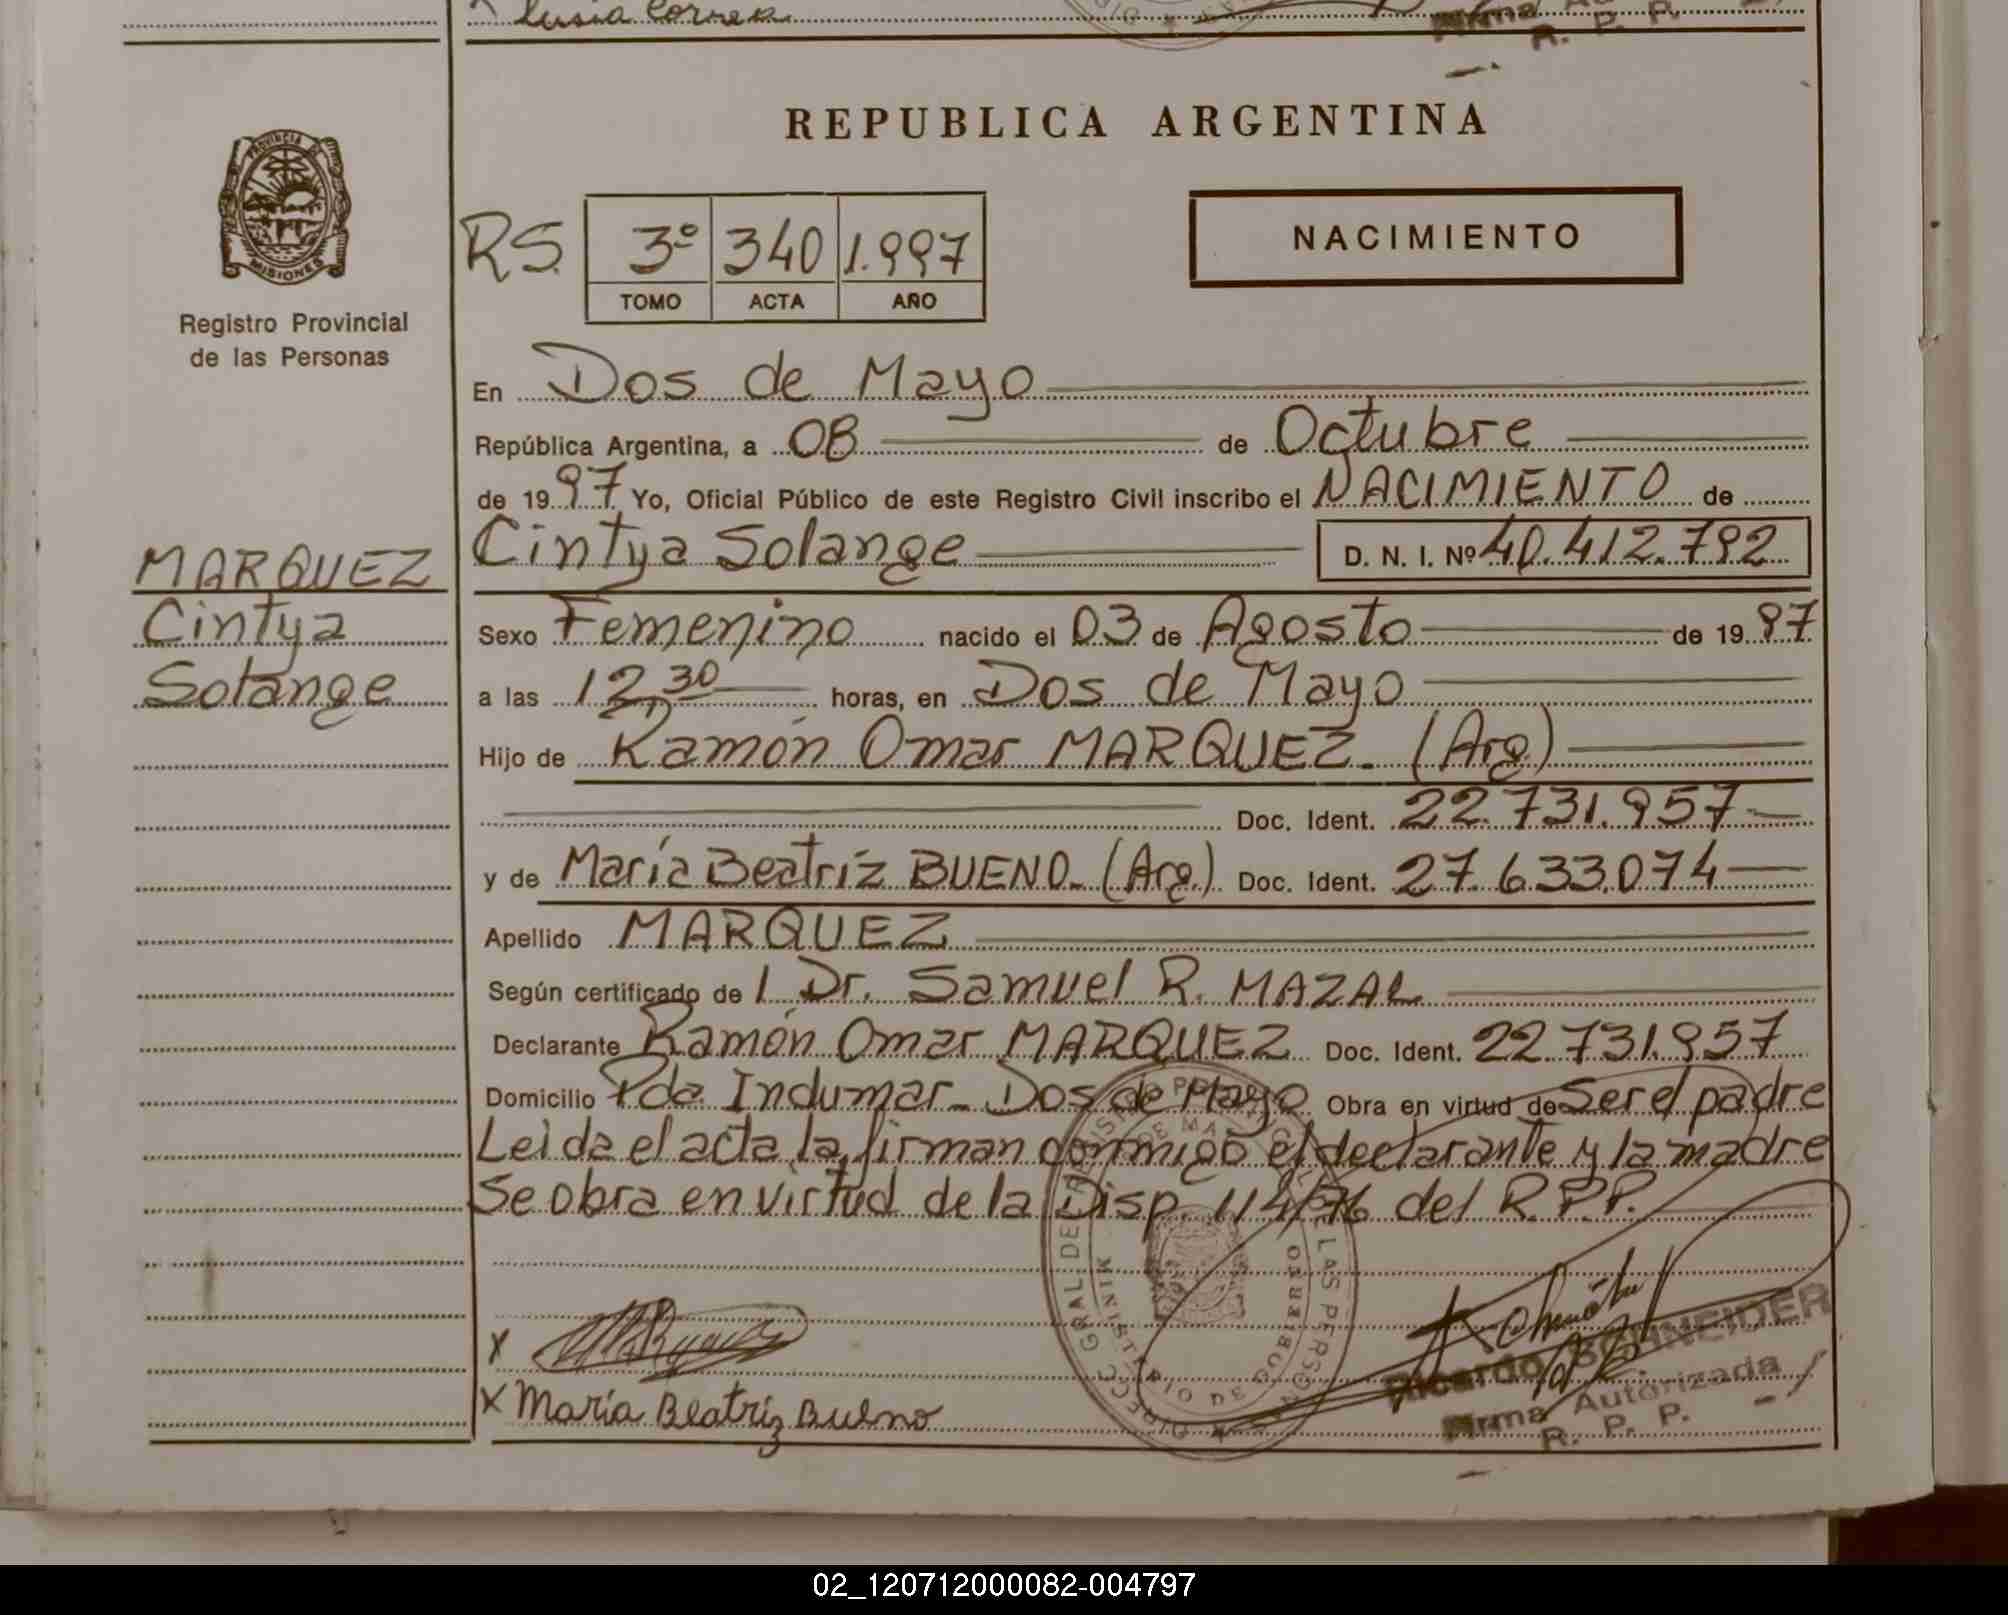 Lusia Correa
Firma
R. P. P.
REPUBLICA ARGENTINA
PROVINCIA DE
MISIONES
Registro Provincial
de las Personas
RS. 3º 340 1.997
TOMO ACTA AÑO
NACIMIENTO
En Dos de Mayo
República Argentina, a 08 de Octubre
de 1997 Yo, Oficial Público de este Registro Civil inscribo el NACIMIENTO de
MARQUEZ
Cintya
Solange
Cintya Solange D. N. I. Nº 40.412.792
Sexo Femenino nacido el 03 de Agosto de 1997
a las 12,30 horas, en Dos de Mayo
Hijo de Ramón Omar MARQUEZ. (Arg)
Doc. Ident. 22.731.957
y de María Beatríz BUENO. (Arg.) Doc. Ident. 27.633.074
Apellido MARQUEZ
Según certificado de l Dr. Samuel R. MAZAL
Declarante Ramón Omar MARQUEZ Doc. Ident. 22.731.957
Domicilio Pda. Indumar - Dos de Mayo Obra en virtud de Ser el padre
Leida el acta la firman conmigo el declarante y la madre
Se obra en virtud de la Disp. 114/76 del R.P.P.
X
X María Beatriz Bueno
Ricardo SCHNEIDER
Firma Autorizada
R. P. P.
02_120712000082-004797